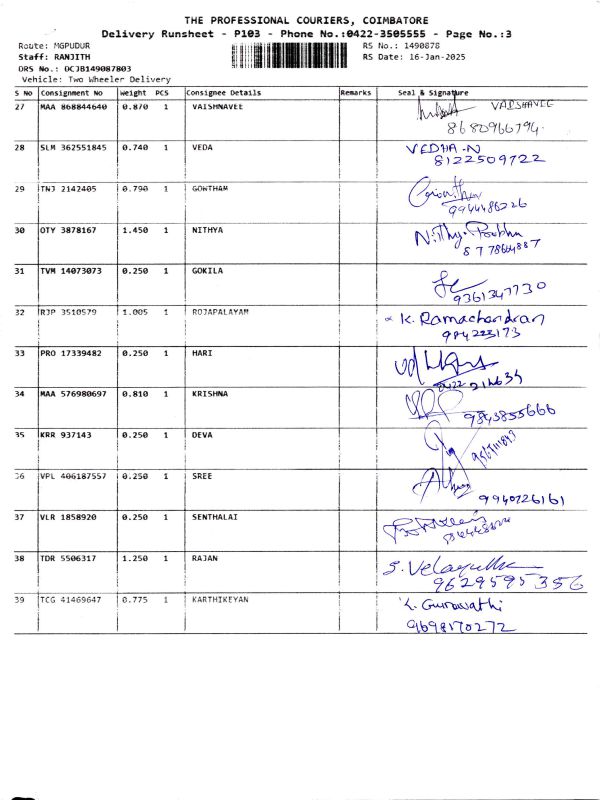 THE PROFESSIONAL COURIERS, COIMBATORE
Delivery Runsheet - P103 - Phone No.:0422-3505555 - Page No.:3
Route: MGPUDUR RS No.: 1490878
Staff: RANJITH RS Date: 16-Jan-2025
DRS No.: DCJB149087803
Vehicle: Two Wheeler Delivery
S No Consignment No Weight PCS Consignee Details Remarks Seal & Signature
27 MAA 868844640 0.870 1 VAISHNAVEE VAISHAVEE
8680966794
28 SLM 362551845 0.740 1 VEDA VEDHA-N
8122509722
29 TNJ 2142405 0.790 1 GOWTHAM Gowtham
9944486226
30 OTY 3878167 1.450 1 NITHYA N.Thy.Prabhu
31 TVM 14073073 0.250 1 GOKILA
9361347730
32 RJP 3510579 1.005 1 ROJAPALAYAM K. Ramachandran
984223173
33 PRO 17339482 0.250 1 HARI
34 MAA 576980697 0.810 1 KRISHNA
9843855666
35 KRR 937143 0.250 1 DEVA
36 VPL 406187557 0.250 1 SREE
9940226161
37 VLR 1858920 0.250 1 SENTHALAI
38 TDR 5506317 1.250 1 RAJAN S. Velayutha
9629595356
39 TCG 41469647 0.775 1 KARTHIKEYAN K. Gunavathi
9698170272